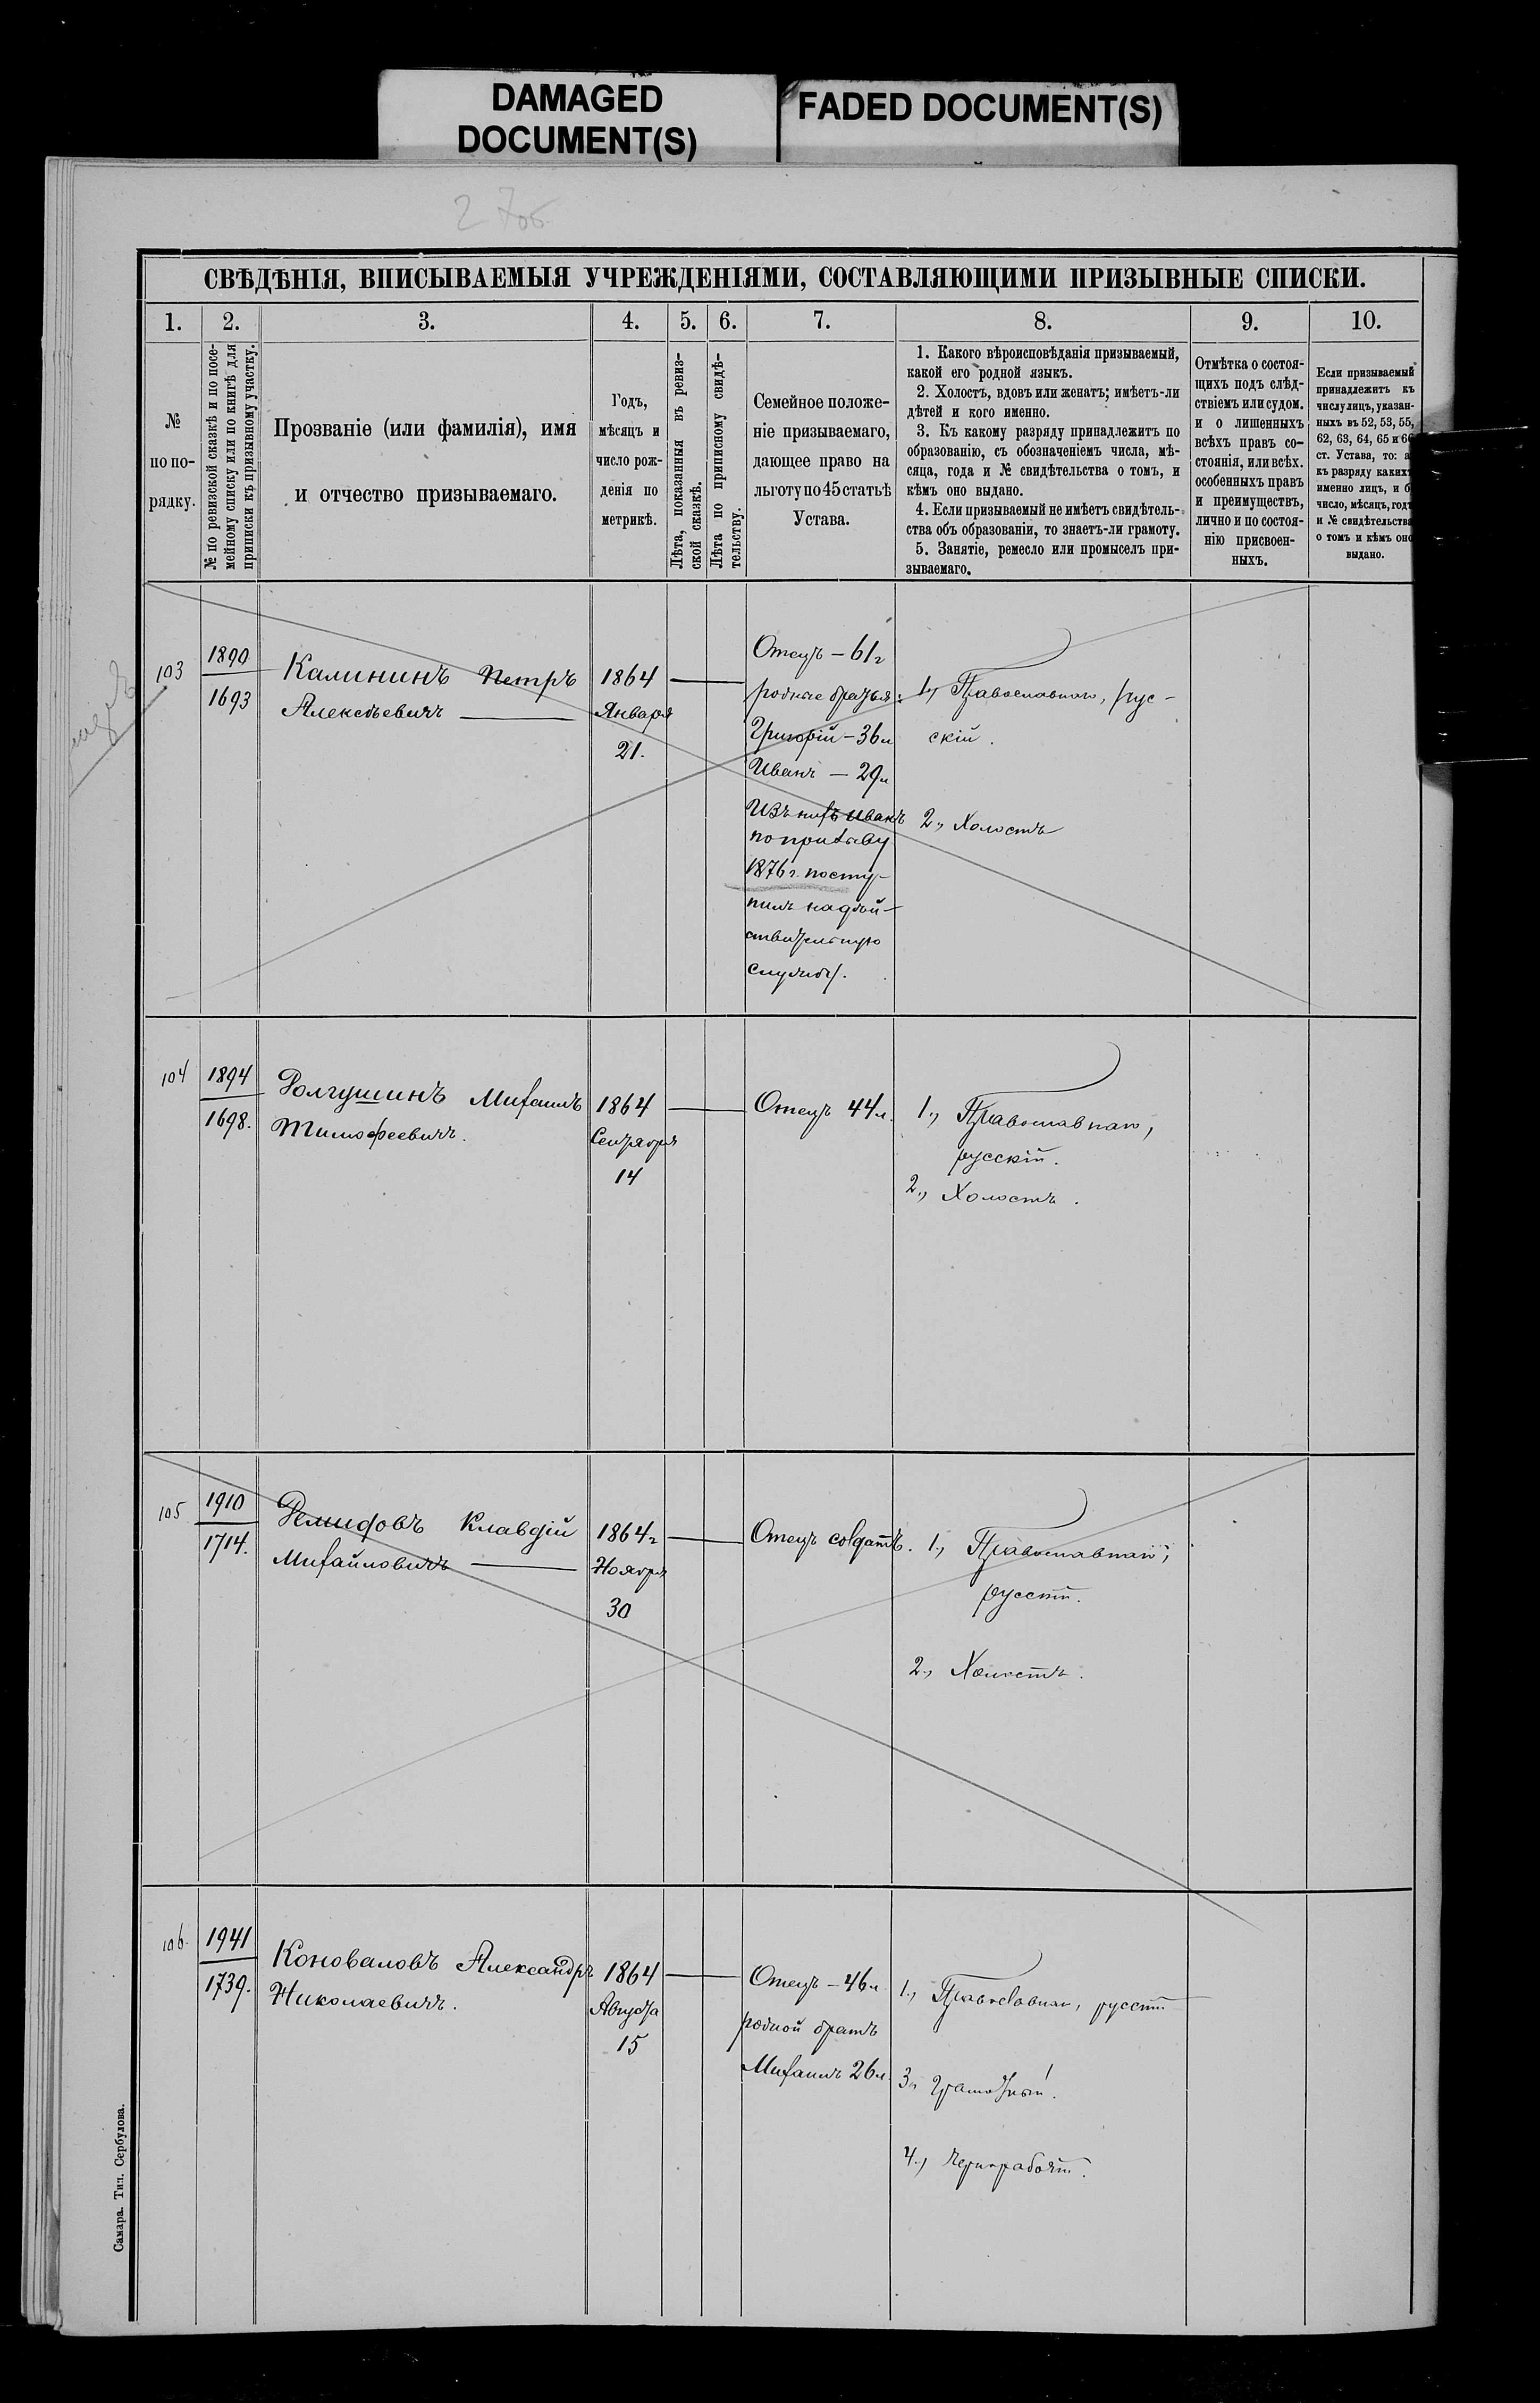 DAMAGED
DOCUMENT(S)
FADED DOCUMENT(S)
2 7об
СВѢДѢНІЯ, ВПИСЫВАЕМЫЯ УЧРЕЖДЕНІЯМИ, СОСТАВЛЯЮЩИМИ ПРИЗЫВНЫЕ СПИСКИ.
1.
2.
3.
4.
5.
6.
7.
8.
9.
10.
№
по по-
рядку.
№ по ревизской сказкѣ и по посе-
мейному списку или по книгѣ для
приписки къ призывному участку.
Прозваніе (или фамилія), имя
и отчество призываемаго.
Годъ,
мѣсяцъ и
число рож-
денія по
метрикѣ.
Лѣта, показанныя въ ревиз-
ской сказкѣ.
Лѣта по приписному свидѣ-
тельству.
Семейное положе-
ніе призываемаго,
дающее право на
льготу по 45 статьѣ
Устава.
1. Какого вѣроисповѣданія призываемый,
какой его родной языкъ.
2. Холостъ, вдовъ или женатъ; имѣетъ-ли
дѣтей и кого именно.
3. Къ какому разряду принадлежитъ по
образованію, съ обозначеніемъ числа, мѣ-
сяца, года и № свидѣтельства о томъ, и
кѣмъ оно выдано.
4. Если призываемый не имѣетъ свидѣтель-
ства объ образованіи, то знаетъ-ли грамоту.
5. Занятіе, ремесло или промыселъ при-
зываемаго.
Отмѣтка о состоя-
щихъ подъ слѣд-
ствіемъ или судом.
и о лишенныхъ
всѣхъ правъ со-
стоянія, или всѣх.
особенныхъ правъ
и преимуществъ,
лично и по состоя-
нію присвоен-
ныхъ.
Если призываемый
принадлежитъ къ
числу лицъ, указан-
ныхъ въ 52, 53, 55,
62, 63, 64, 65 и 66
ст. Устава, то:
къ разряду какихъ
именно лицъ, и
число, мѣсяцъ, годъ
и № свидѣтельства
о томъ и кѣмъ оно
выдано.
103
1890
1693
Калининъ Петръ
Алексѣевичъ
1864
Января
21.
Отецъ – 61 г
родные братья:
Григорій – 36 л
Иванъ – 29 л
Изъ нихъ Иванъ
по призыву
1876 г. посту-
пилъ на дѣй-
ствительную
службу.
1., Православнаго, рус-
скій.
2., Холостъ
104
1894
1698.
Долгушинъ Михаилъ
Тимофеевичъ.
1864
Сентября
14
Отецъ 44 л.
1., Православнаго,
русскій.
2., Холостъ.
105
1910
1714.
Демидовъ Клавдій
Михайловичъ
1864 г
Ноября
30
Отецъ солдатъ.
1., Православнаго,
русскій.
2., Холостъ.
106.
1941
1739.
Коноваловъ Александръ
Николаевичъ.
1864
Августа
15
Отецъ – 46 л.
родной братъ
Михаилъ 26 л.
1., Православнаго, русскій
3., Грамотный.
4., Чернорабочій.
Самара. Тип. Сербулова.